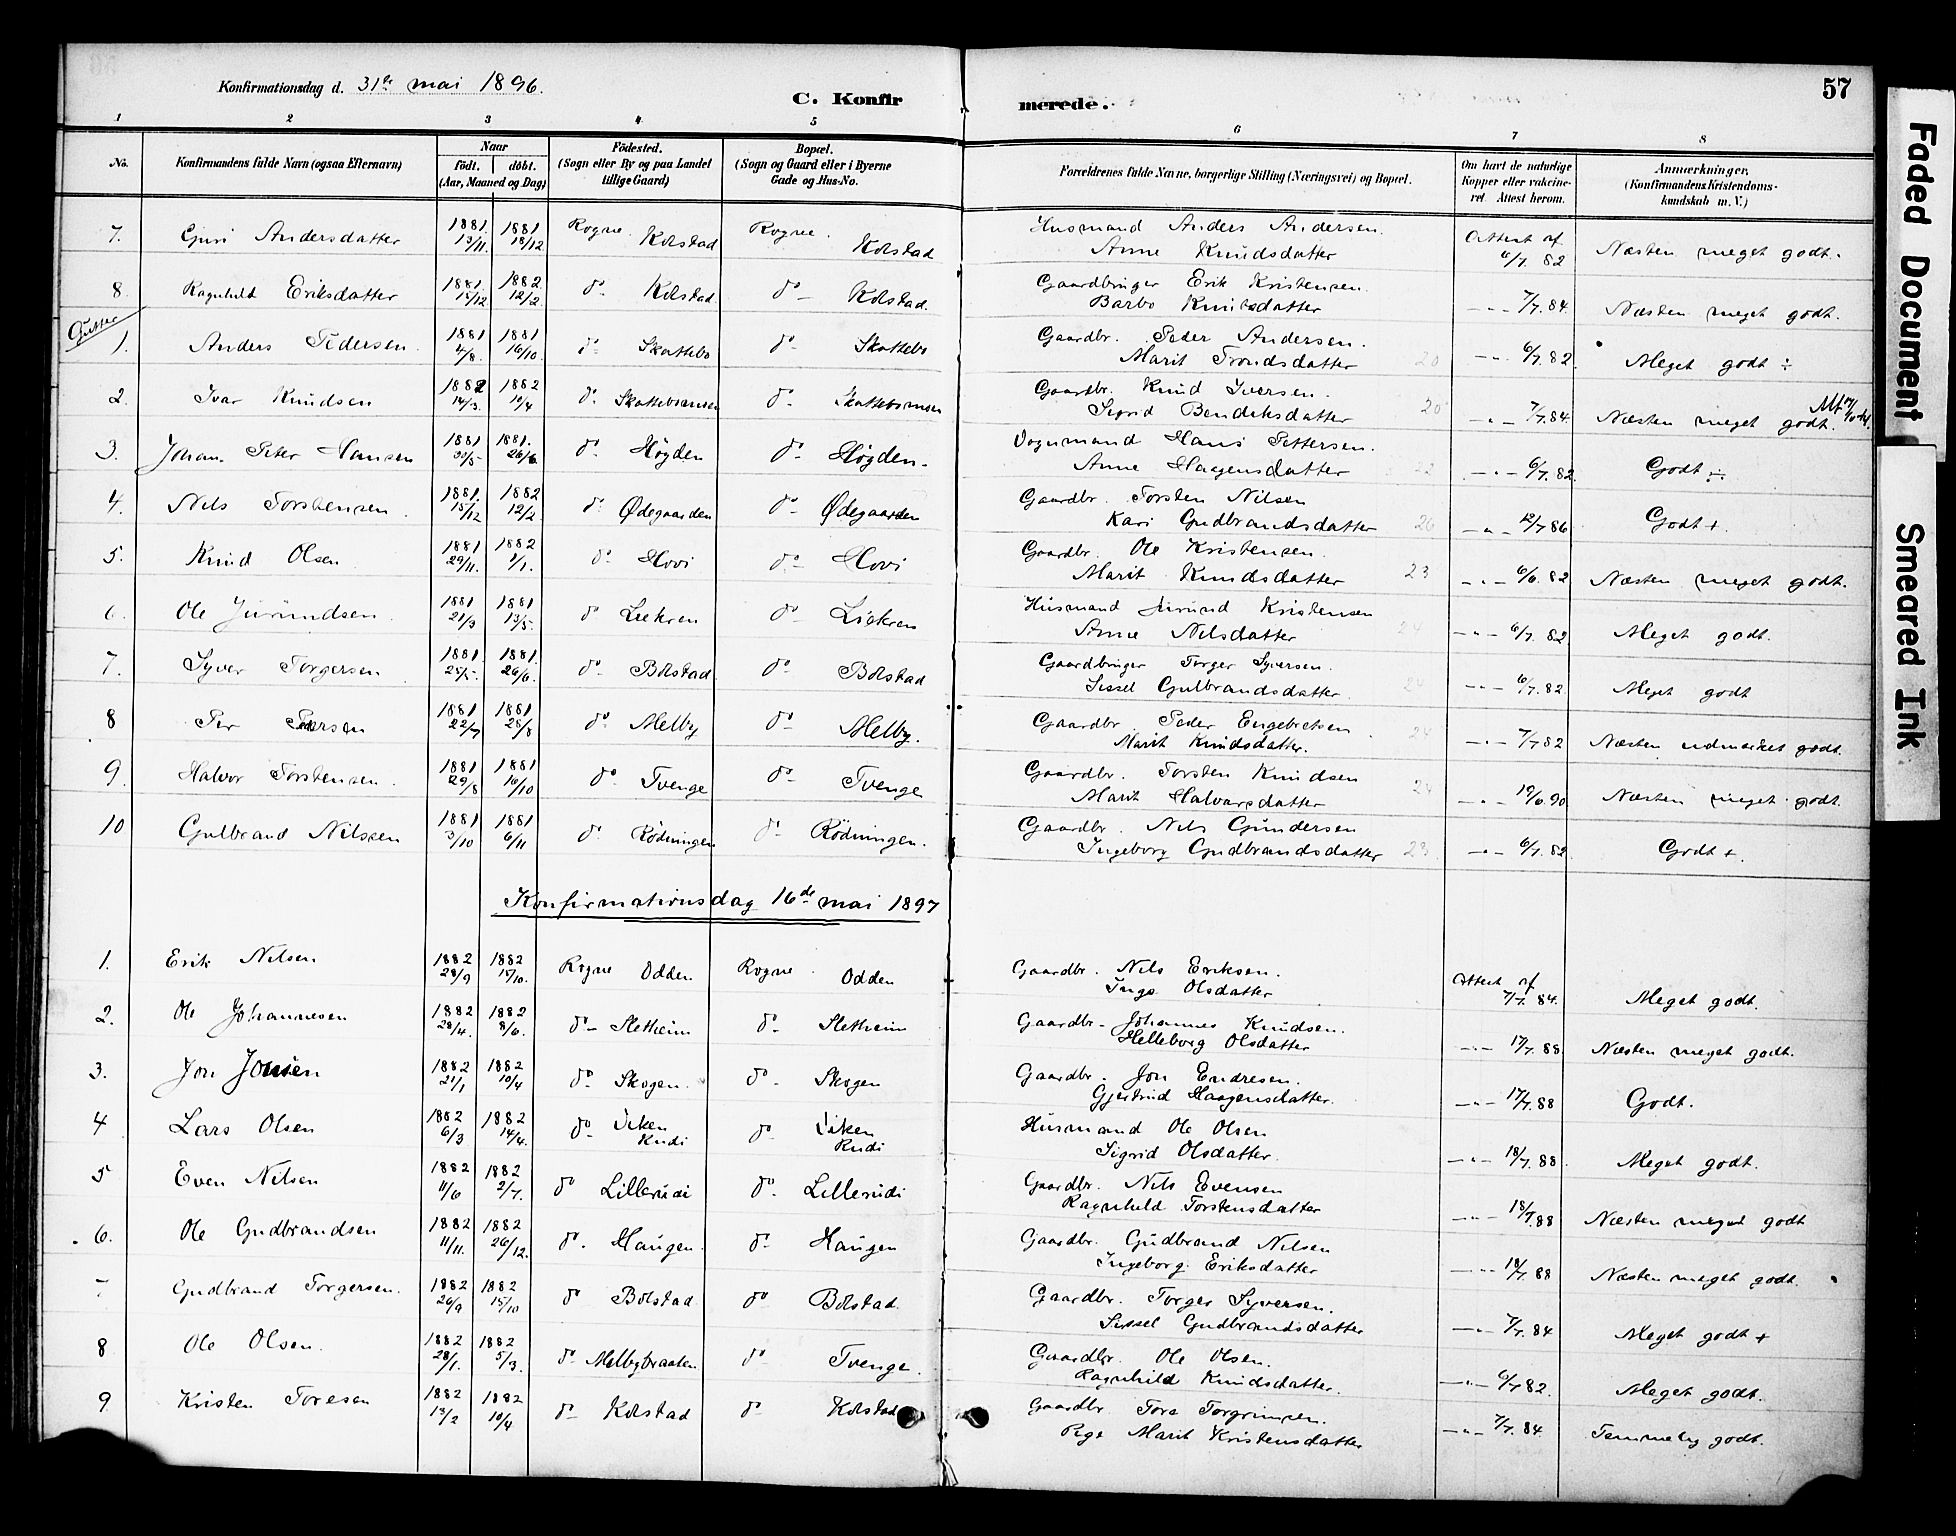 Konfirmationsdag d. 31te mai 1896.
C. Konfirmerede.
57
1 2 3 4 5 6 7 8
No. Konfirmandens fulde Navn (ogsaa Efternavn) Naar født. døbt. (Aar, Maaned og Dag) Fødested. (Sogn eller By og paa Landet tillige Gaard) Bopæl. (Sogn og Gaard eller i Byerne Gade og Hus-No. Forældrenes fulde Navne, borgerlige Stilling (Næringsvei) og Bopæl. Om havt de naturlige Kopper eller vakcineret. Attest herom. Anmærkninger, (Konfirmandens Kristendomskundskab m. V.)
7. Guri Andersdatter 1881. 13/11. 1881 18/12 Rogne. Kolstad Rogne. Kolstad Husmand Anders Andersen. Anne Knudsdatter Attest af 6/7. 82 Næsten meget godt.
8. Ragnhild Eriksdatter 1881. 15/12 1882 12/2. do Kolstad do Kolstad. Gaardbruger Erik Kristensen. Barbo Knudsdatter -"- 7/7. 84. Næsten meget godt.
Gutter
1. Anders Pedersen. 1881 4/8. 1881 16/10. do Skattebo do Skattebo Gaardbr. Peder Andersen. Marit Trondsdatter 20 -"- 6/7. 82. Meget godt ÷
2. Ivar Knudsen 1882 14/3. 1882 10/4 do do Gaardbr. Knud Iversen. Sigrid Bendiksdatter 20 -"- 7/7. 84. Næsten meget godt.
3. Johan Peter Hansen 1881 30/5 1881. 26/6. do Høgden do Høgden. Hans Pettersen. Anne Haagensdatter 22 -"- 6/7. 82. Godt ÷
4. Nils Torstensen. 1881. 15/12 1882 12/2 do Ødegaarden do Ødegaarden Gaardbr. Torsten Nilsen Kari Gudbrandsdatter 26 -"- 12/7. 86 Godt +
5. Knud Olsen 1881 29/11. 1882 1/1. do Hovi do Hovi Gaardbr. Ole Kristensen. Marit Knudsdatter 23 -"- 6/6. 82 Næsten meget godt.
6. Ole Jurundsen. 1881 21/3 1881 13/5. do Liekren do Liekren Husmand Jurund Kristensen Anne Nilsdatter 24 -"- 6/7. 82 Meget godt.
7. Syver Torgersen 1881. 25/5. 1881. 26/6. do Bolstad do Bolstad Gaardbruger Torger Syversen. Sissel Gulbrandsdatter. 24 -"- 6/7. 82. Meget godt
8 Per Pedersen 1881 22/7 1881 28/8 do Melby do Melby. Gaardbr. Peder Engebretsen. Marit Knudsdatter. 24 -"- 7/7 82 Næsten udmærket godt.
9. Halvor Torstensen. 1881 29/8 1881 16/10 do Tvenge do Tvenge Gaardbr. Torsten Knudsen Marit Halvorsdatter 24 -"- 19/6. 90. Næsten meget godt.
10 Gulbrand Nilssen 1881 3/10 1881 6/11 do Rödningen do Rödningen. Gaardbr. Nils Gundersen Ingeborg Gudbrandsdatter 23 -"- 6/7. 82 Godt +.
Konfirmationsdag 16de mai 1897
1. Erik Nilsen 1882 28/9 1882 15/10. Rogne Odden Rogne. Odden Gaardbr. Nils Eriksen. Inga Olsdatter Attest af 7/7. 84. Meget godt.
2. Ole Johannesen 1882 28/4. 1882 8/6. do Sletheim do Sletheim Gaardbr. Johannes Knudsen. Helleborg Olsdatter -"- 17/7. 88. Næsten meget godt.
3. Jon Jonsen 1882 21/1 1882 10/4 do Skogen. do Skogen Gaardbr. Jon Endresen. Gjertrud Haagensdatter. -"- 17/7. 88 Godt.
4 Lars Olsen 1882 6/3 1882 14/4. do Rudi do Rudi Husmand Ole Olsen Sigrid Olsdatter. -"- 18/7. 88 Meget godt.
5 Even Nilsen 1882 11/6 1882 2/7. do Lillerudi do Lillerudi Gaardbr. Nils Evensen Ragnhild Torstensdatter -"- 18/7. 88 Næsten meget godt
6. Ole Gudbrandsen 1882 11/11. 1882 26/12. do Haugen. do Haugen Gaardbr. Gudbrand Nilsen Ingeborg Eriksdatter -"- 18/7. 88 Næsten meget godt.
7 Gudbrand Torgersen. 1882 26/9 1882 15/10 do Bolstad do Bolstad. Gaardbr. Torger Syversen. Sissel Gudbrandsdatter -"- 7/7. 84 Meget godt +
8 Ole Olsen. 1882 28/1. 1882 5/3. do Melbybraaten do Tvenge. Gaardbr. Ole Olsen. Ragnhild Knudsdatter. -"- 6/7 82. Meget godt.
9. Kristen Toresen 1882 13/2 1882 10/4 do Kolstad do Kolstad Gaardbr Tore Torgrimsen. Marit Kristensdatter -"- 7/7. 84. Temmelig godt.
Faded Document
Smeared Ink